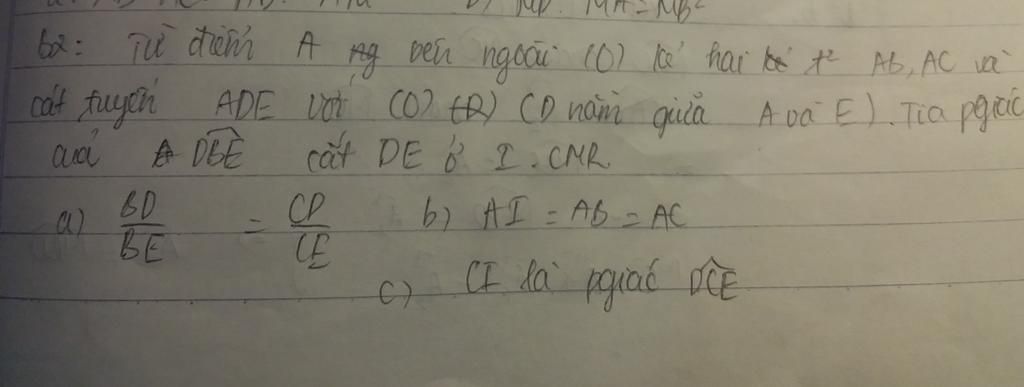 b) MD. MA = MB²
b2: Từ điểm A ng bên ngoài (O) kẻ hai t² AB, AC và
cát tuyến ADE với (O) (D nằm giữa A và E). Tia pgiác
của DBE cắt DE ở I. CMR
a) BD/BE = CD/CE b) AI = AB = AC
c) CI là pgiác DCE